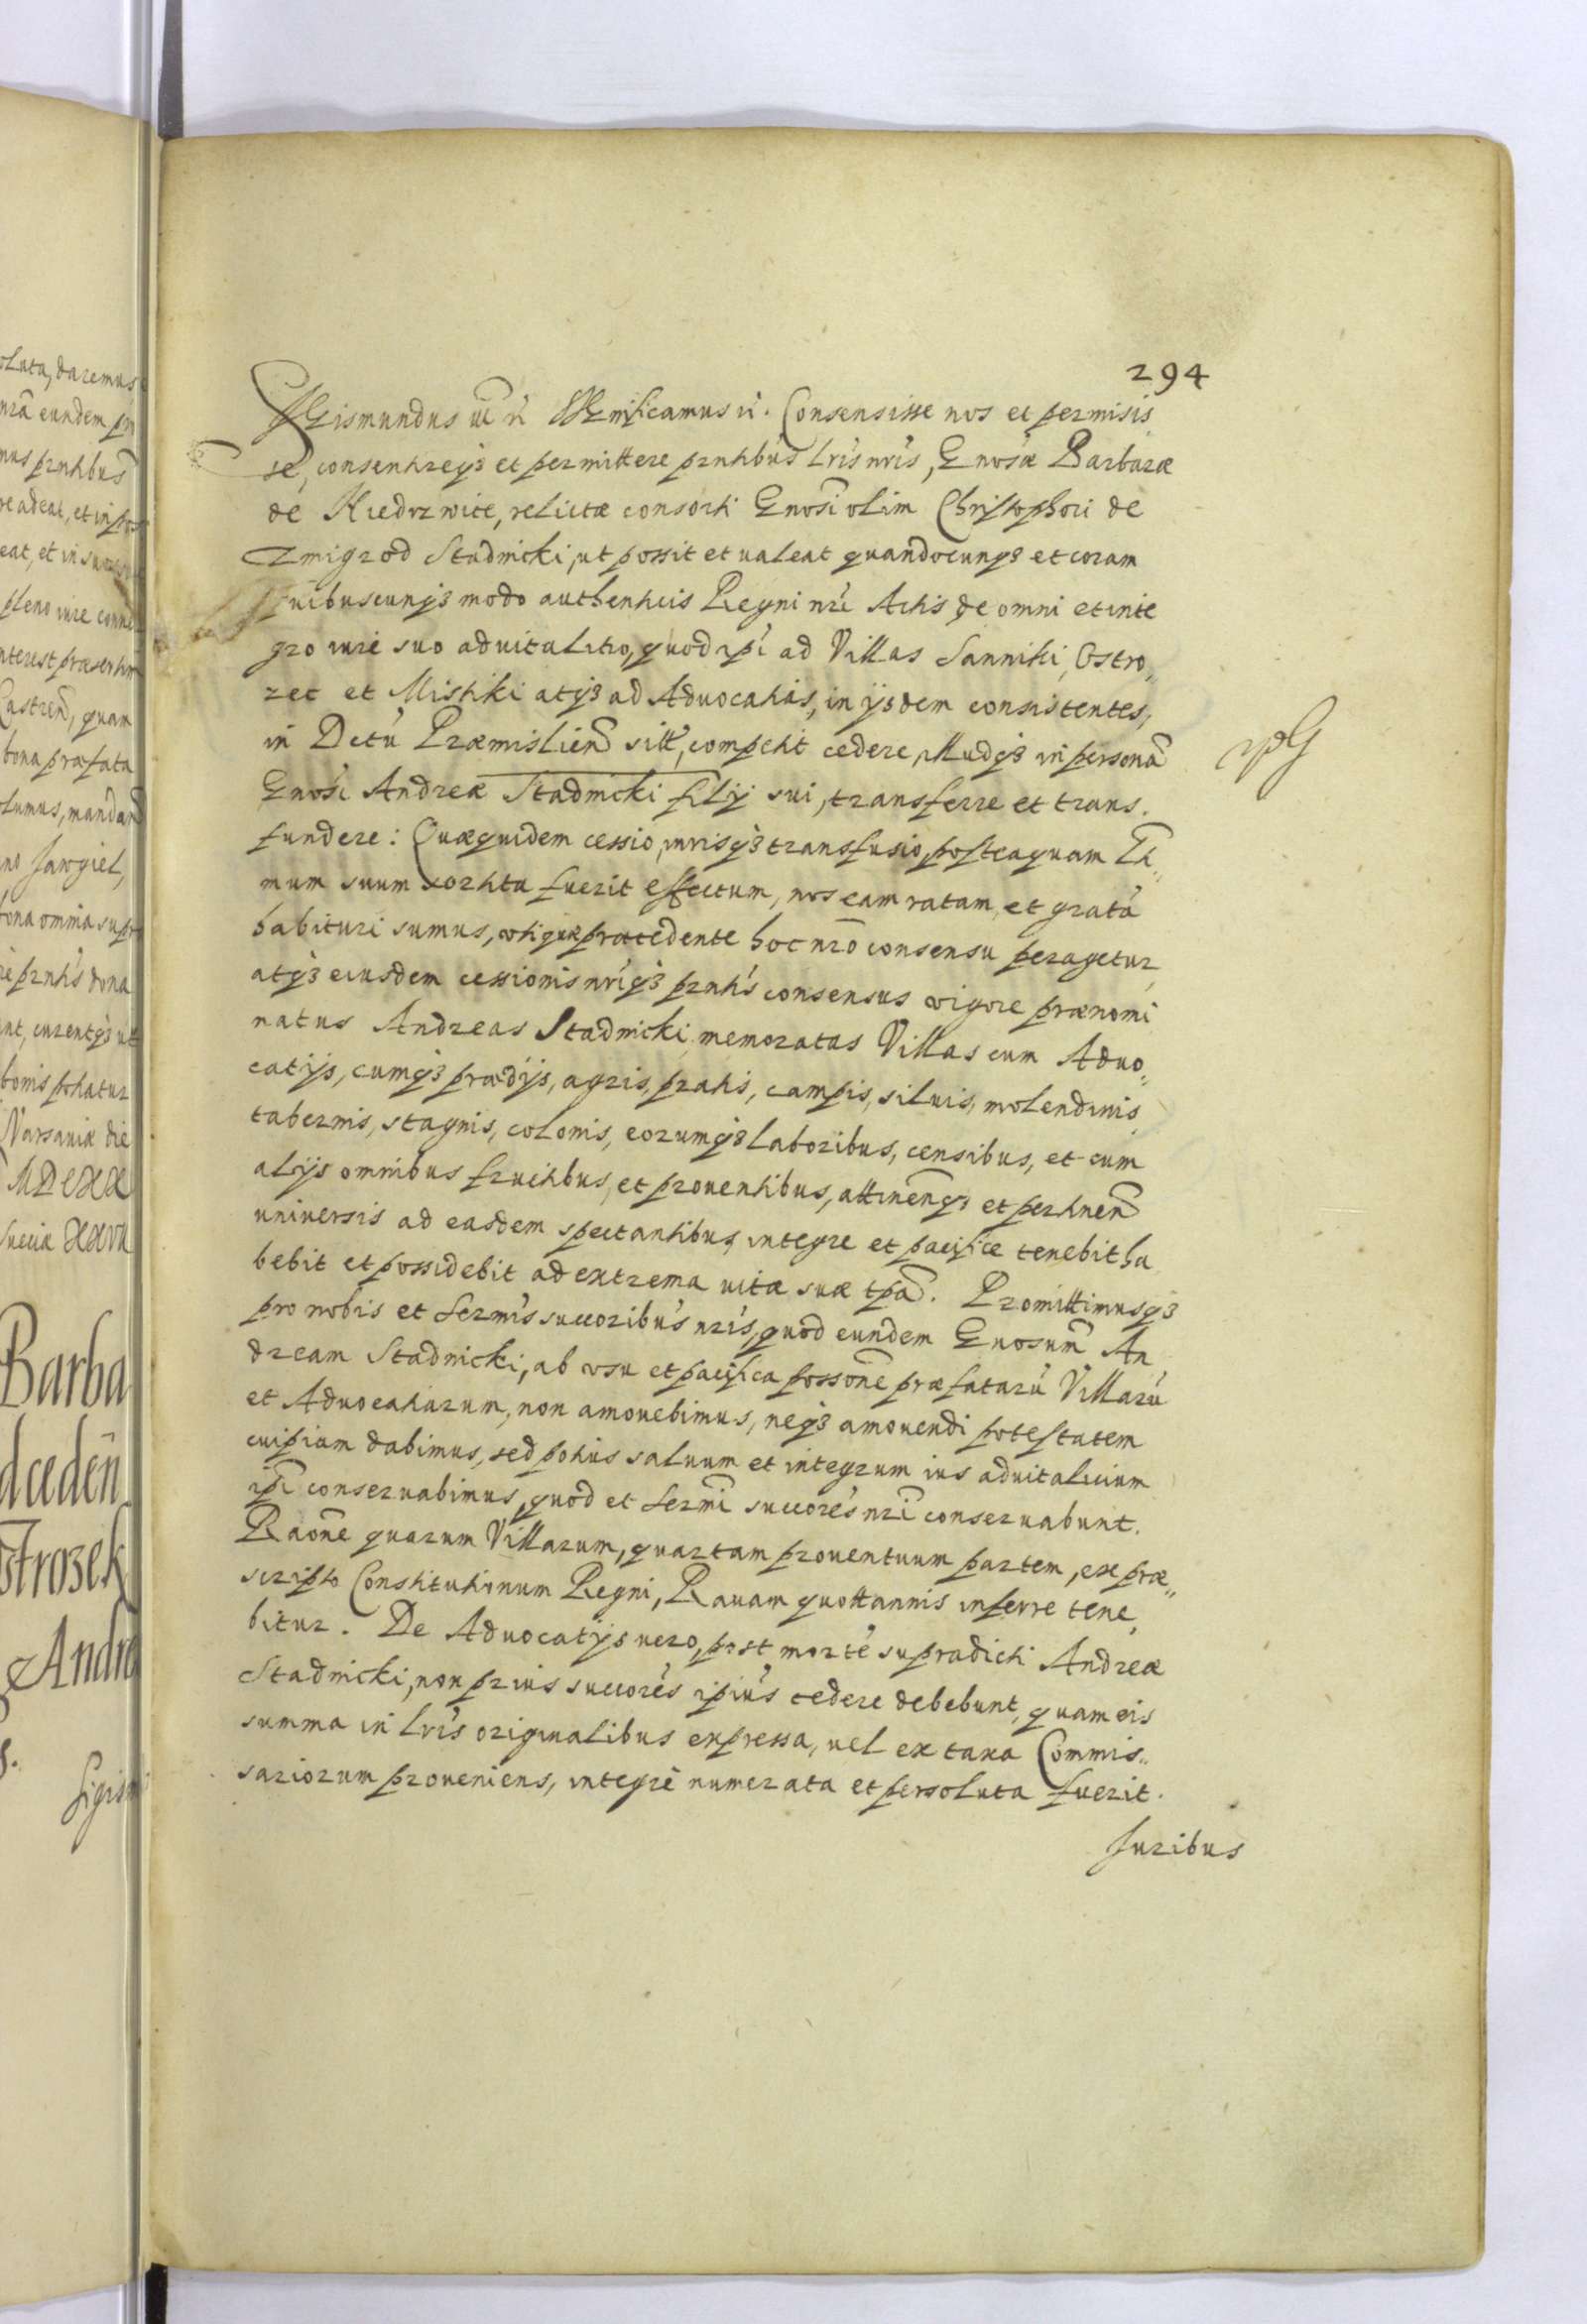 294
SIGismundus etc Significamus etc. Consensisse nos et permisis
se, consentireq3 et permittere prntibus lris nris, Gnosæ Barbaræ
de Niedrzwice, relictæ consorti Gnosi olim Christophori de
Zmigrod Stadnicki, ut possit et ualeat quandocunq3 et coram
quibuscunq3 modo authenticis Regni nri Actis de omni et inte
gro iure suo aduitalitio, quod ipi ad Villas Sanniki, Ostro,
zec et Mistiki atq3 ad Aduocatias, in ijsdem consistentes,
in Dctu Præmislien sitt, competit cedere, illudq3 in personā
Gnosi Andreæ Stadnicki filij sui, transferre et trans.
fundere: Quæquidem cessio, iurisq3 transfusio, posteaquam
mum suum sortita fuerit effectum, nos eam ratam, et gratā
habituri sumus, præcedente hoc nro consensu peragetur,
atq3 eiusdem cessionis nriq3 prntis consensus vigore prænomi
natus Andreas Stadnicki, memoratas Villas cum Aduo„
catijs, cumq3 prædijs, agris, pratis, campis, siluis, molendinis,
tabernis, stagnis, colonis, eorumq3 laboribus, censibus, et cum
alijs omnibus fructibus, et prouentibus, attinenq3 et pertinen
uniuersis ad easdem spectantibus, integre et pacifice tenebit ha
bebit et possidebit ad extrema uitæ suæ tpa. Promittimusq3
pro nobis et Sermis succoribus nris, quod eundem Gnosum An
dream Stadnicki, ab vsu et pacifica possone præfatarū Villarū
et Aduocatiarum, non amouebimus, neq3 amouendi potestatem
cuipiam dabimus, sed potius saluum et integrum ius aduitalicium
ipi conseruabimus, quod et Sermi succores nri conseruabunt.
Raone quarum Villarum, quartam prouentuum partem, ex præ„
scripto Constitutionum Regni, Rauam quottannis inferre tene,
bitur. De Aduocatijs uero, post morte supradicti Andreæ
Stadnicki, non prius succores ipius cedere debebunt, quam eis
summa in lris originalibus expressa, uel ex taxa Commis„
sariorum proueniens, integrè numerata et persoluta fuerit.
Juribus